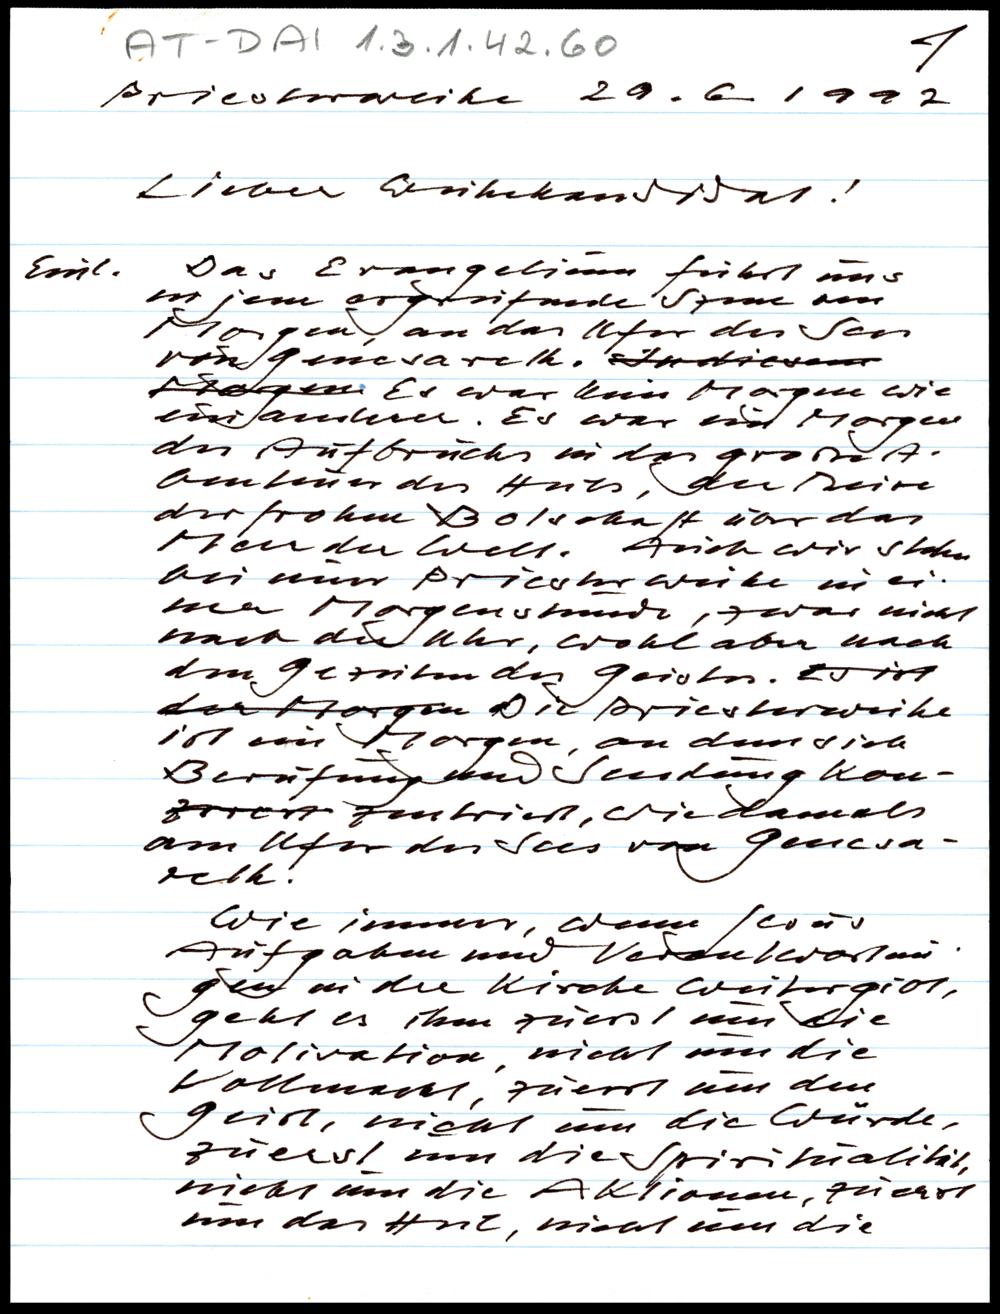 AT-DAI 1.3.1.42.60
1
Priesterweihe 29.6 1992
Lieber Weihekandidat!
Einl. Das Evangelium führt uns
in jene ergreifende Szene am
Morgen, an das Ufer des Sees
von Genesareth. In diesem
Morgen. Es war kein Morgen wie
ein anderer. Es war ein Morgen
des Aufbruchs in das grosse A-
benteuer des Heils, der Reise
der frohen Botschaft über das
Meer der Welt. Auch wir stehn
bei einer Priesterweihe in ei-
ner Morgenstunde, zwar nicht
nach der Uhr, wohl aber nach
den Gezeiten des Geistes. Es ist
der Morgen Die Priesterweihe
ist ein Morgen, an dem sich
Berufung und Sendung kon-
zentriert, wie damals
am Ufer des Sees von Genesa-
reth.
Wie immer, wenn Jesus
Aufgaben und Verantwortun-
gen in der Kirche weitergibt,
geht es ihm zuerst um die
Motivation, nicht um die
Vollmacht, zuerst um den
Geist, nicht um die Würde,
zuerst um die Spiritualität,
nicht um die Aktionen, zuerst
um das Herz, nicht um die